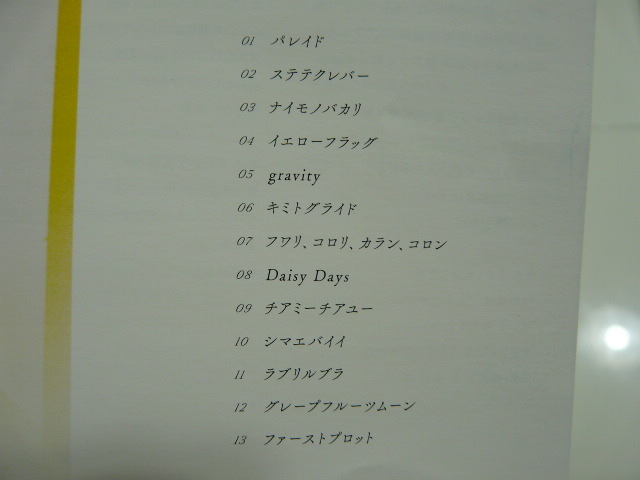 01 パレイド
02 ステテクレバー
03 ナイモノバカリ
04 イエローフラッグ
05 gravity
06 キミトグライド
07 フワリ、コロリ、カラン、コロン
08 Daisy Days
09 チアミーチアユー
10 シマエバイイ
11 ラブリルブラ
12 グレープフルーツムーン
13 ファーストプロット